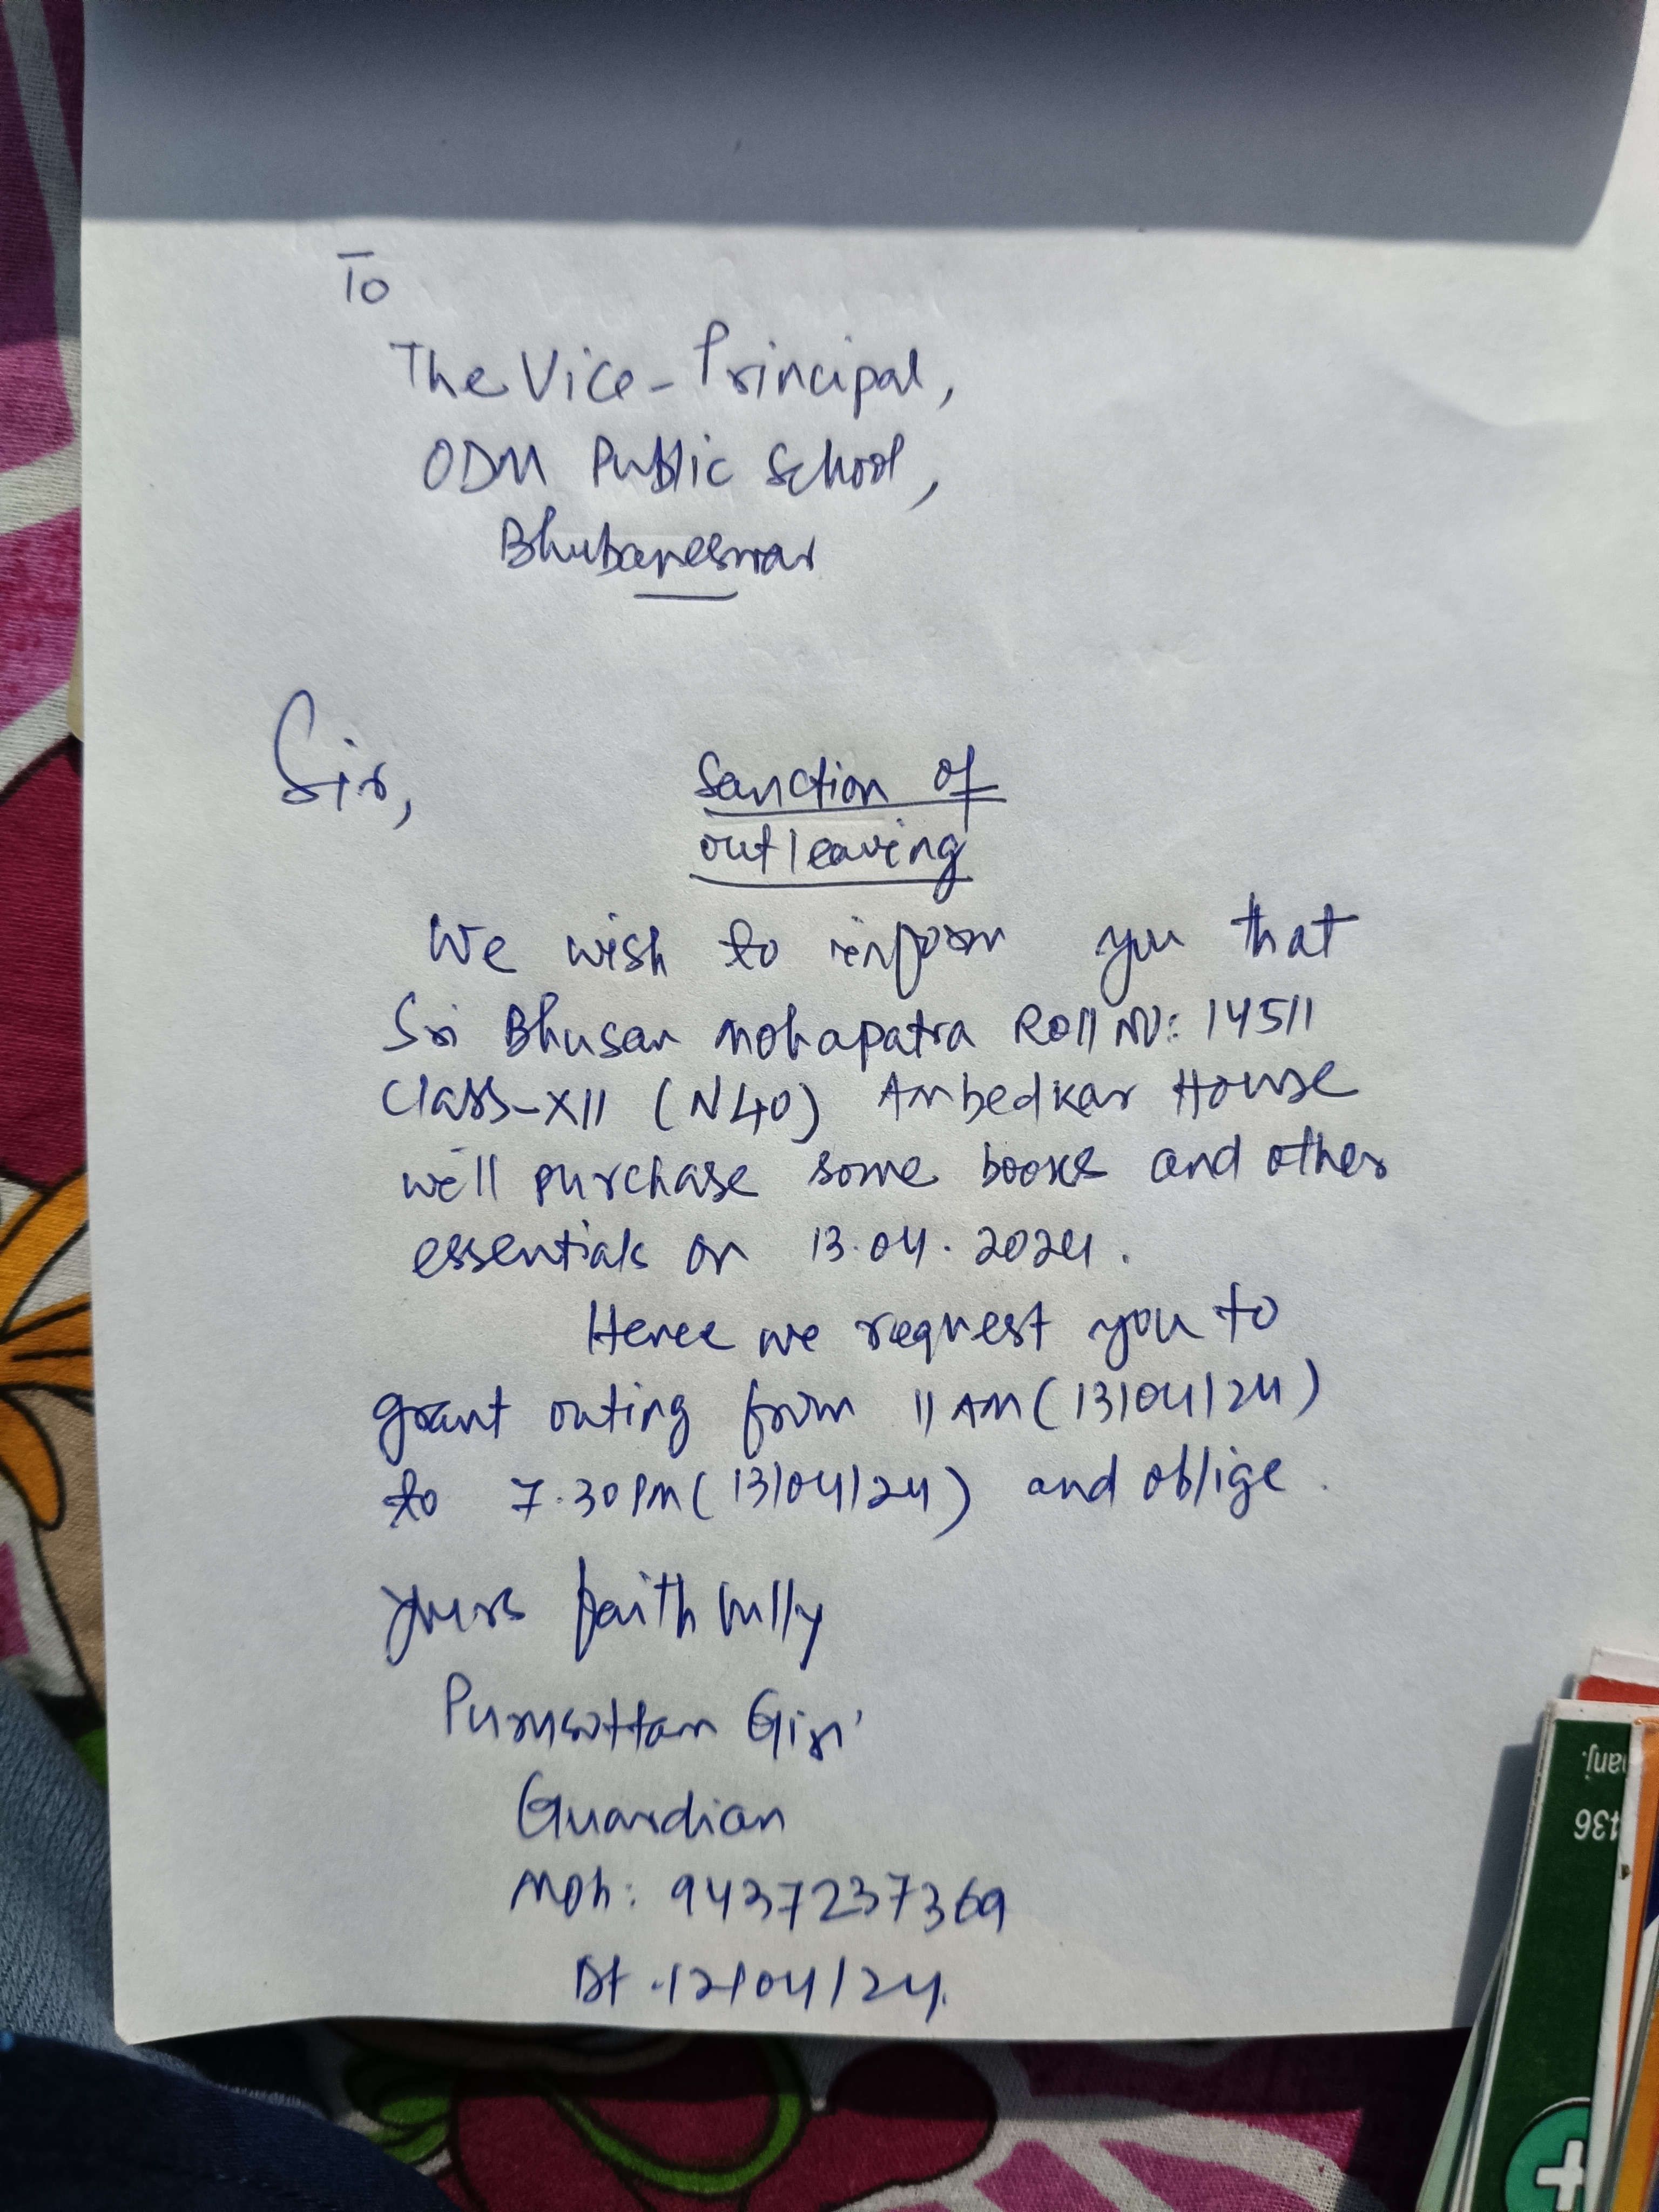 To
The Vice-Principal,
ODM Public School,
Bhubaneswar
Sir,
Sanction of
outleaving
We wish to inform you that
Sri Bhusan Mohapatra Roll No: 14511
Class-XII (N40) Ambedkar House
will purchase some books and other
essentials on 13.04.2024.
Hence we request you to
grant outing from 11 AM (13/04/24)
to 7.30 PM (13/04/24) and oblige.
Yours faithfully
Purusottam Giri
Guardian
Mob: 9437237369
Dt. 12/04/24.
anj.
136